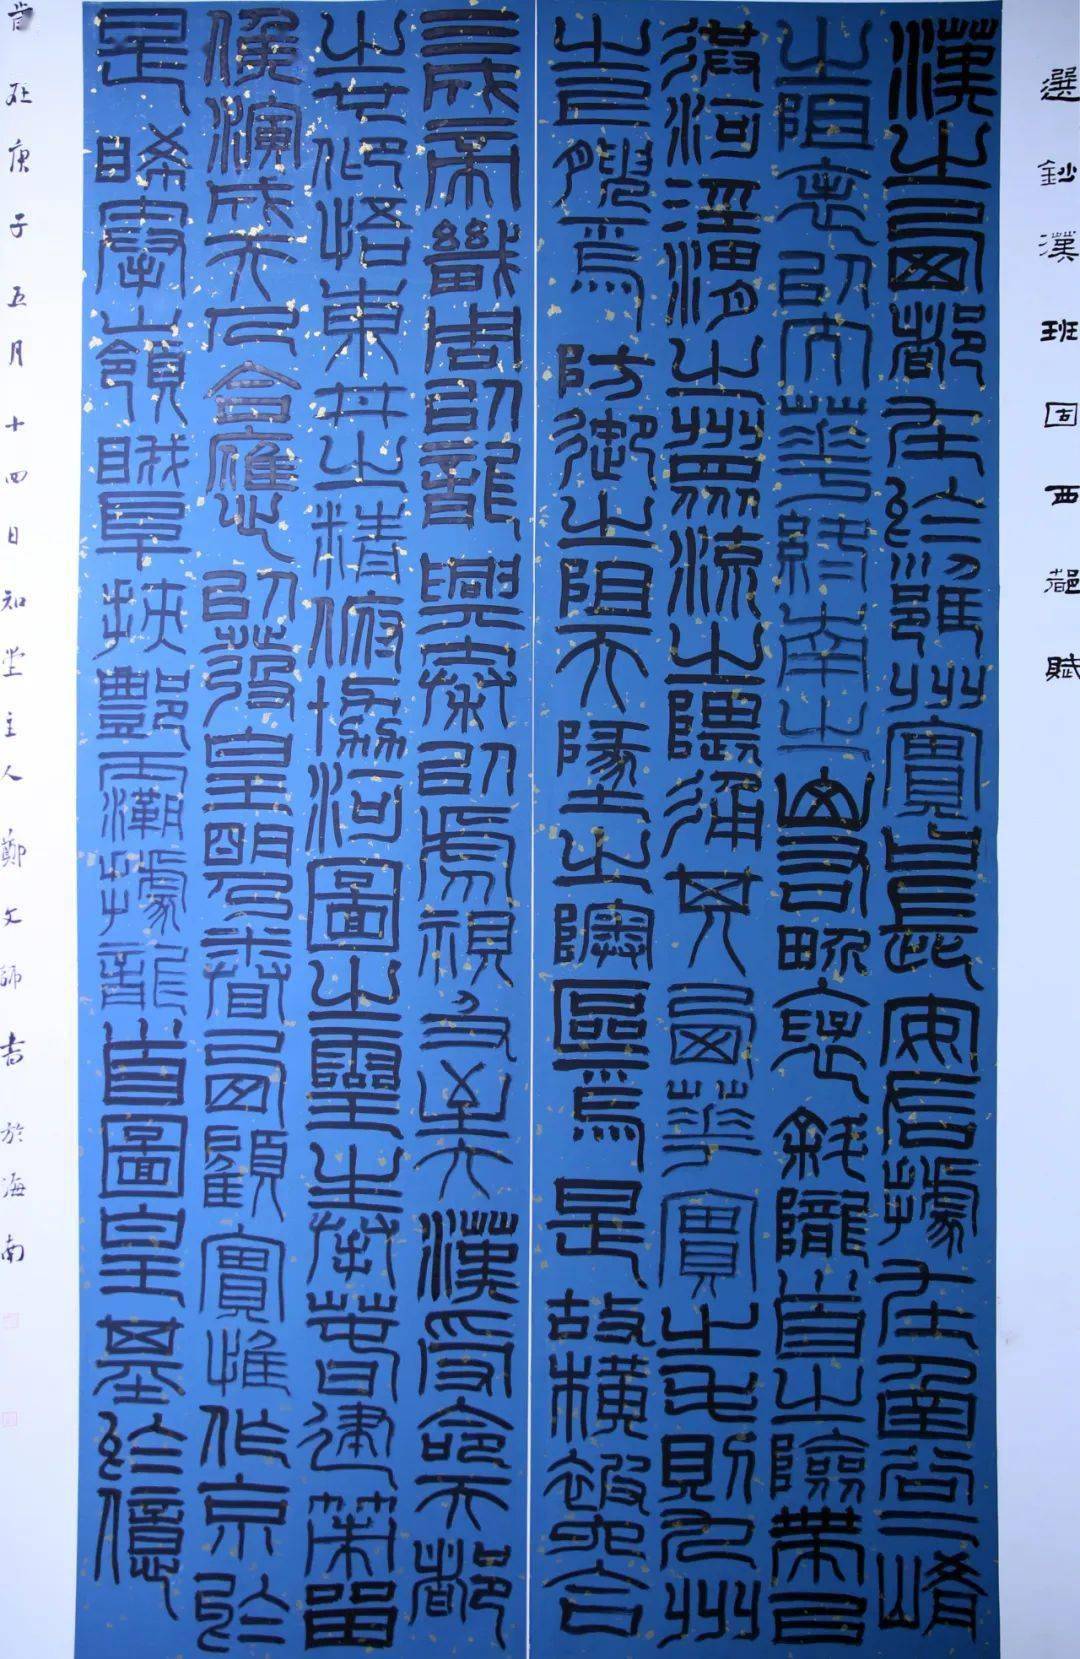 選鈔漢班固西都賦
漢之西都在於雍州實曰長安據函谷二崤
之阻表以大華終南之山右界褒斜隴首之險帶以
洪河涇渭之川眾流之隈汧其西華實之毛則九州
之上腴焉防御之阻天墬之隩區焉是故橫被六合
三成帝畿周以龍興秦以虎視及至大漢受命而都
之也仰悟東井之精俯協河圖之靈奉春建策留
侯演成天人合應以發皇明乃眷西顧實惟作京於
是睎秦嶺睋阜挾酆灞據龍首圖皇基於億
旹在庚子五月十四日知坐主人鄭文師書於海南